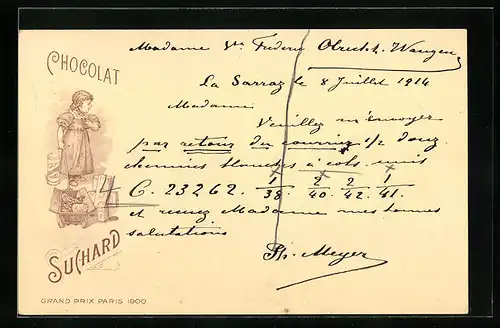 CHOCOLAT
SUCHARD
GRAND PRIX PARIS 1900
Madame Vve Frédéric Obrecht, Wangen
La Sarraz le 8 Juillet 1914
Madame
Veuillez m'envoyer
par retour du courrier 1/2 douz.
chemises blanches à cols, unis
4 C. 23262. 1/38. 2/40. 2/42. 1/41.
et recevez Madame mes bonnes
salutations
Ph. Meyer